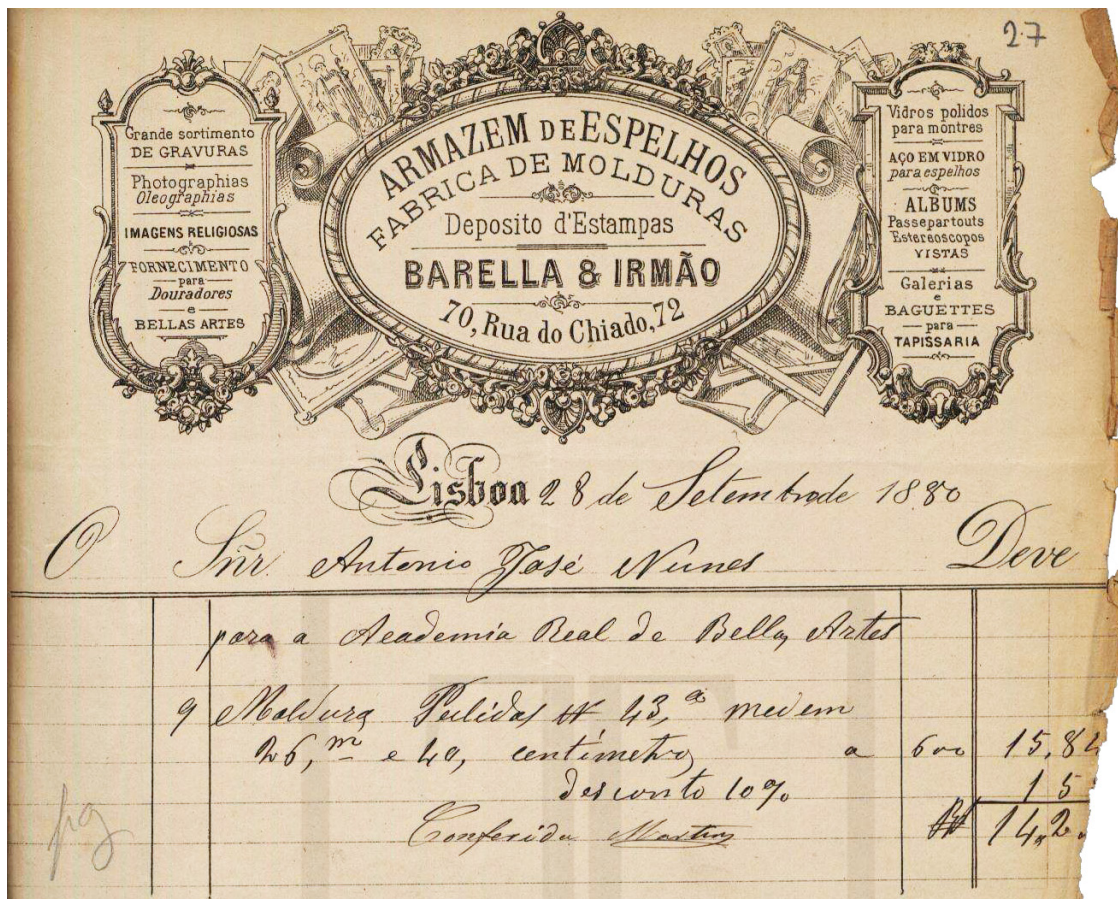 27
Grande sortimento
DE GRAVURAS
Photographias
Oleographias
IMAGENS RELIGIOSAS
FORNECIMENTO
para
Douradores
e
BELLAS ARTES
ARMAZEM DE ESPELHOS
FABRICA DE MOLDURAS
Deposito d'Estampas
BARELLA & IRMÃO
70, Rua do Chiado, 72
Vidros polidos
para montres
AÇO EM VIDRO
para espelhos
ALBUMS
Passepartouts
Estereoscopos
VISTAS
Galerias
e
BAGUETTES
para
TAPISSARIA
Lisboa 28 de Setembro de 1880
O Snr. Antonio José Nunes Deve
para a Academia Real de Bellas Artes
9 Molduras Pulidas Nº 43,ª medem
26,m e 40, centimetros a 600 15,84
desconto 10% 15
Conferida Martins 14,2
pg